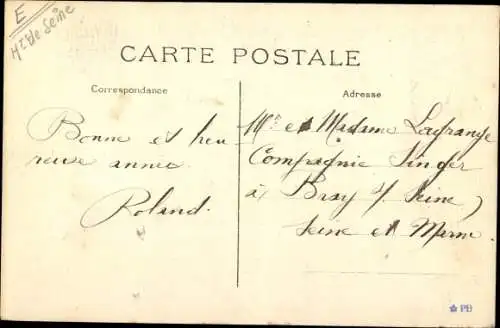 E
Hte de Seine
CARTE POSTALE
Correspondance
Adresse
Bonne et heu-
reuse année
Roland.
Mr et Madame Lagrange
Compagnie Singer
à Bray s/ Seine
Seine et Marne
PB